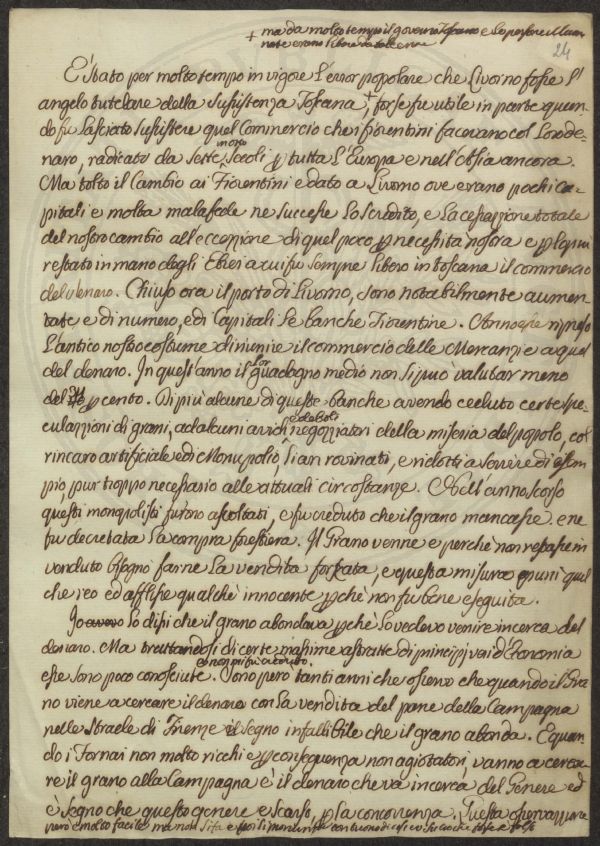 + ma da molto tempo il governo Toscano e le persone illumi
nate erano libere da tal errore
24
È stato per molto tempo in vigore l'error popolare che Livorno fosse l'
angelo tutelare della sussistenza Toscana, + forse fu utile in parte quan
do fu lasciato sussistere quel Commercio che i fiorentini facevano col Loro de=
naro, radicato da sette Secoli p tutta l'Europa e nell'Asia ancora.
Ma tolto il Cambio ai Fiorentini e dato a Livorno ove erano pochi Ca=
pitali e molta malafede ne successe lo scredito, e la cessazione totale
del nostro cambio all'eccezzione di quel poco p necessità nostra e p
restato in mano degli Ebrei a cui fu sempre libero in toscana il commercio
del denaro. Chiuso ora il porto di Livorno, sono notabilmente aumen=
tate e di numero, e di Capitali le banche Fiorentine. Anno ripreso
l'antico nostro costume di unire il commercio delle Mercanzie a quel
del denaro. In quest'anno il lor guadagno medio non si può valutar meno
del p cento. Di più alcune di queste banche avendo ceduto certe spe=
culazzioni di grani, ad alcuni avidi e deboli negozziatori della miseria del popolo, col
rincaro artificiale e di Monopolio, si an rovinati, e ridotti a servire di esem
pio, pur troppo necessario alle attuali circostanze. Nell'anno scorso
questi monopolisti furono ascoltati, e fu creduto che il grano mancasse e ne
fu decretata la compra forestiera. Il Grano venne e perchè non restasse in
venduto bisogno farne la vendita forzata, e questa misura punì qual
che reo ed afflisse qualche innocente pchè non fu bene eseguita.
Io avevo lo dissi che il grano abondava pchè lo vedevo venire in cerca del
denaro. Ma trattandosi di certe massime astratte di principj vai d'Economia
esse sono poco conosciute. Sono però tanti anni che osservo che quando il Gra
no viene a cercare il denaro con la vendita del pane della Campagna
nelle strade di Firenze è segno infallibile che il grano abonda. E quan=
do i Fornai non molto ricchi e p conseguenza non agiotatori, vanno a cerca=
re il grano alla Campagna è il denaro che va in cerca del Genere ed
è segno che questo genere e scarso, p la concorrenza. Questa osservazzione
però è molto facile ma non si fa e